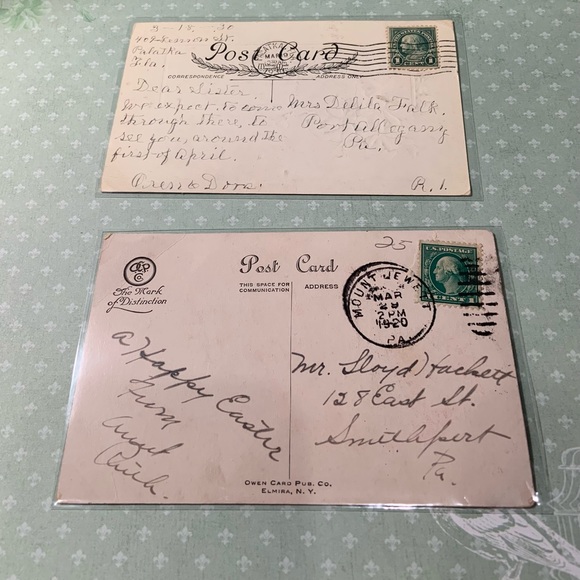 3 18 30
Palatka
Fla.
Post Card
CORRESPONDENCE
ADDRESS ONLY
Dear Sister
we expect to come
through there, to
see you, around the
first of April.
Oren & Dora.
Mrs Delila Falk.
Port Allegany
Pa.
R. 1.
PALATKA
MAR
U.S. POSTAGE
The Mark
of Distinction
Post Card
THIS SPACE FOR
COMMUNICATION
ADDRESS
25
U.S. POSTAGE
CENT
MOUNT JEWETT
MAR
29
2 PM
1920
PA.
a Happy Easter
from
Aunt
Mr. Lloyd Hackett
128 East St.
Smethport
Pa.
OWEN CARD PUB. CO.
ELMIRA, N. Y.